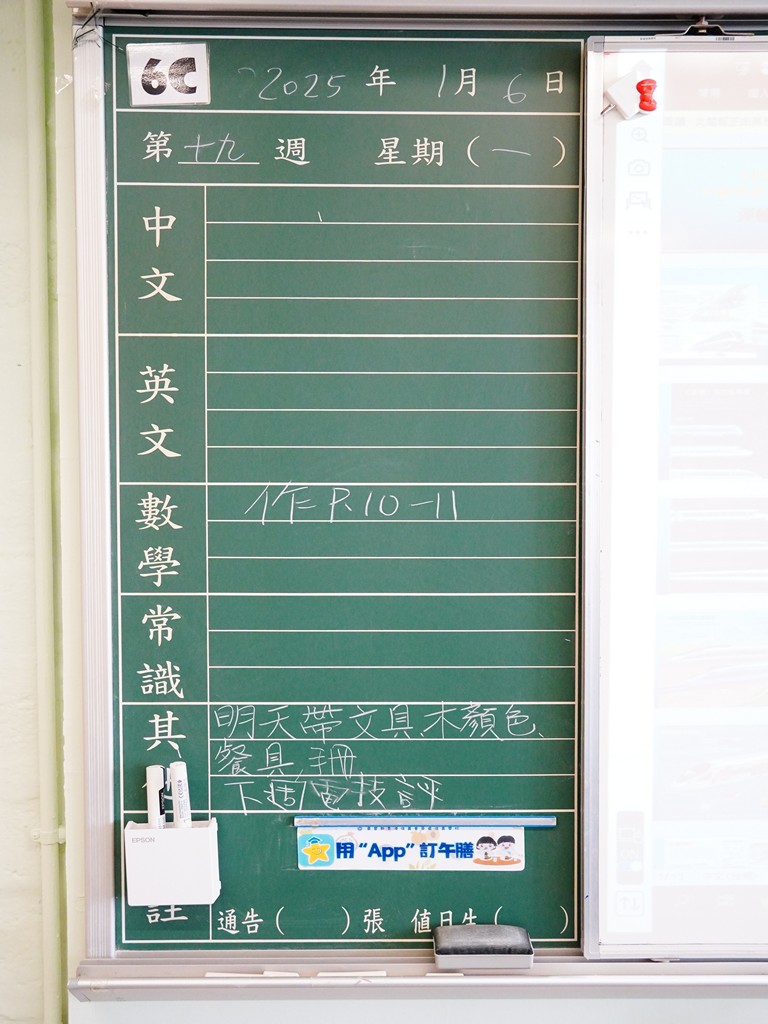 6C
2025 年 1月 6 日
第十九週 星期(一)
中文
英文
數學
作 P.10-11
常識
其
明天帶文具、木顏色、
餐具、手冊
下週電技評
EPSON
用“App”訂午膳
註
通告( )張 值日生( )